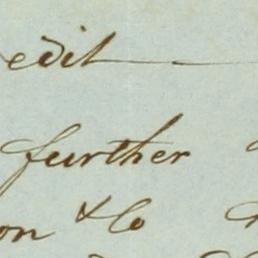 edit
further
on & Co